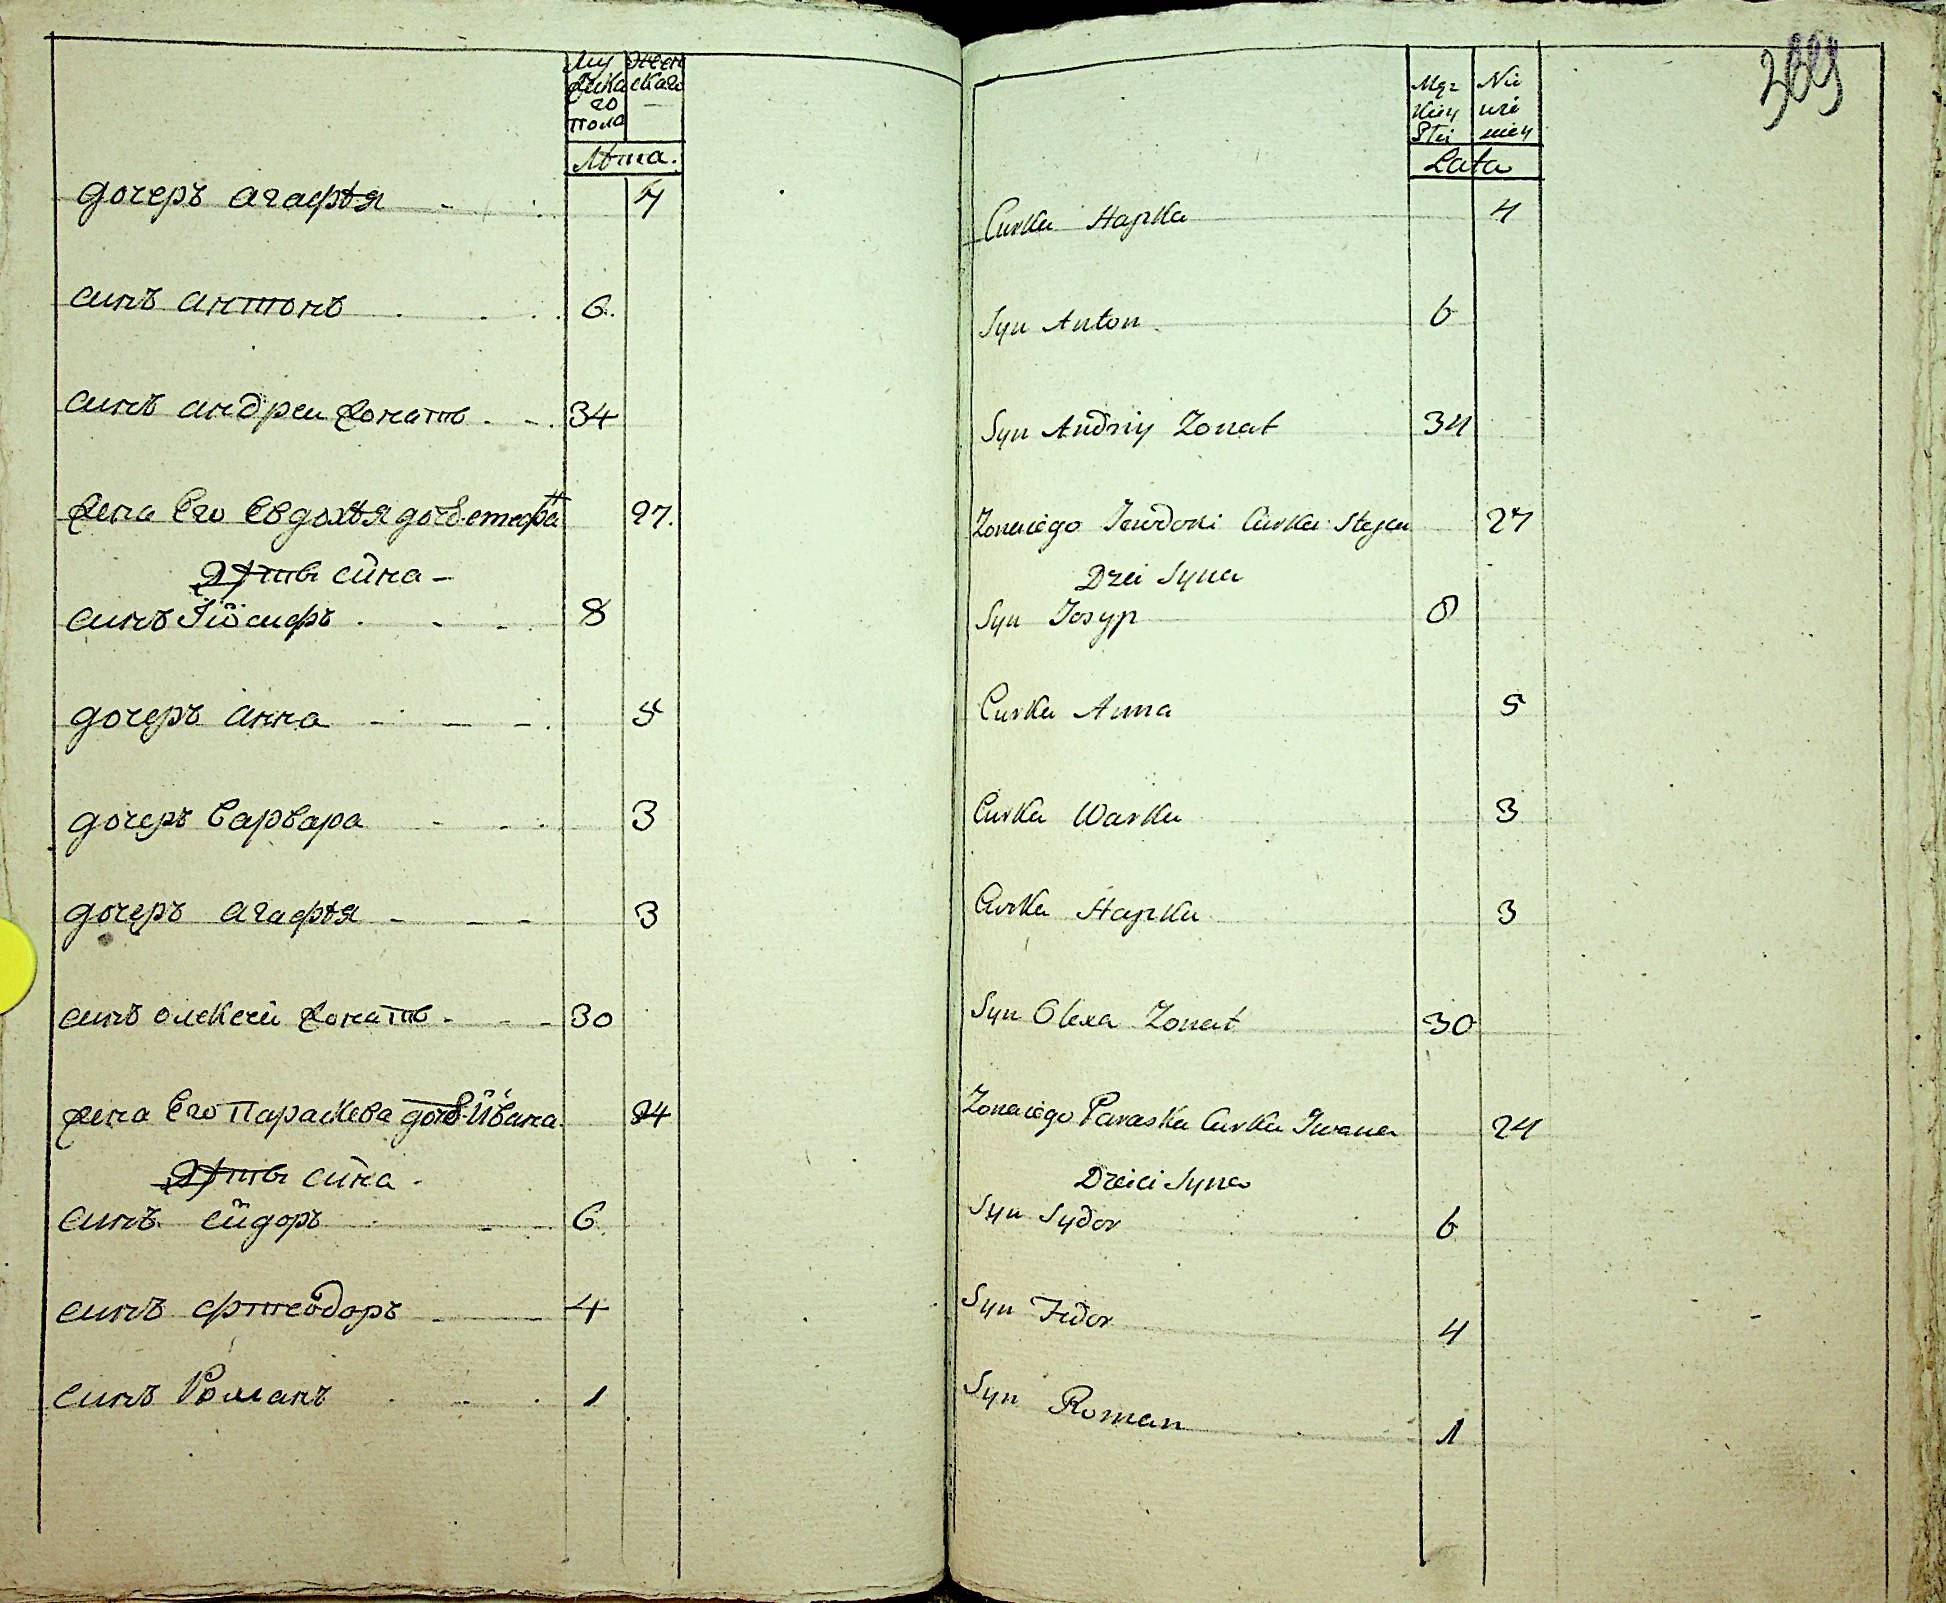 Му
жска
го
пола
Женскаго
Лѣта.
дочеръ агафѣя 4
синъ антонъ 6
синъ андреи жонатъ 34
жена Его Евдохѣя дочъ стефа 27
Дѣти сина
синъ Іосифъ 8
дочеръ анна 5
дочеръ варвара 3
дочеръ агафѣя 3
синъ олексей жонатъ 30
жена Его Параскева дочъ Ивана 24
Дѣти сина
синъ сидоръ 6
синъ фтеодоръ 4
синъ Романъ 1
369
Męz
kiey
Płci
Nie
wie
sciey
Lata
Curka Hapka 4
Syn Anton 6
Syn Andriy Zonat 34
Zona iego Iewdoki Curka Stefan 27
Dzei Syna
Syn Iosyp 8
Curka Anna 5
Curka Warka 3
Curka Hapka 3
Syn Olexa Zonat 30
Zona iego Paraska Curka Iwana 24
Dzieci Syna
Syn Sydor 6
Syn Fedor 4
Syn Roman 1